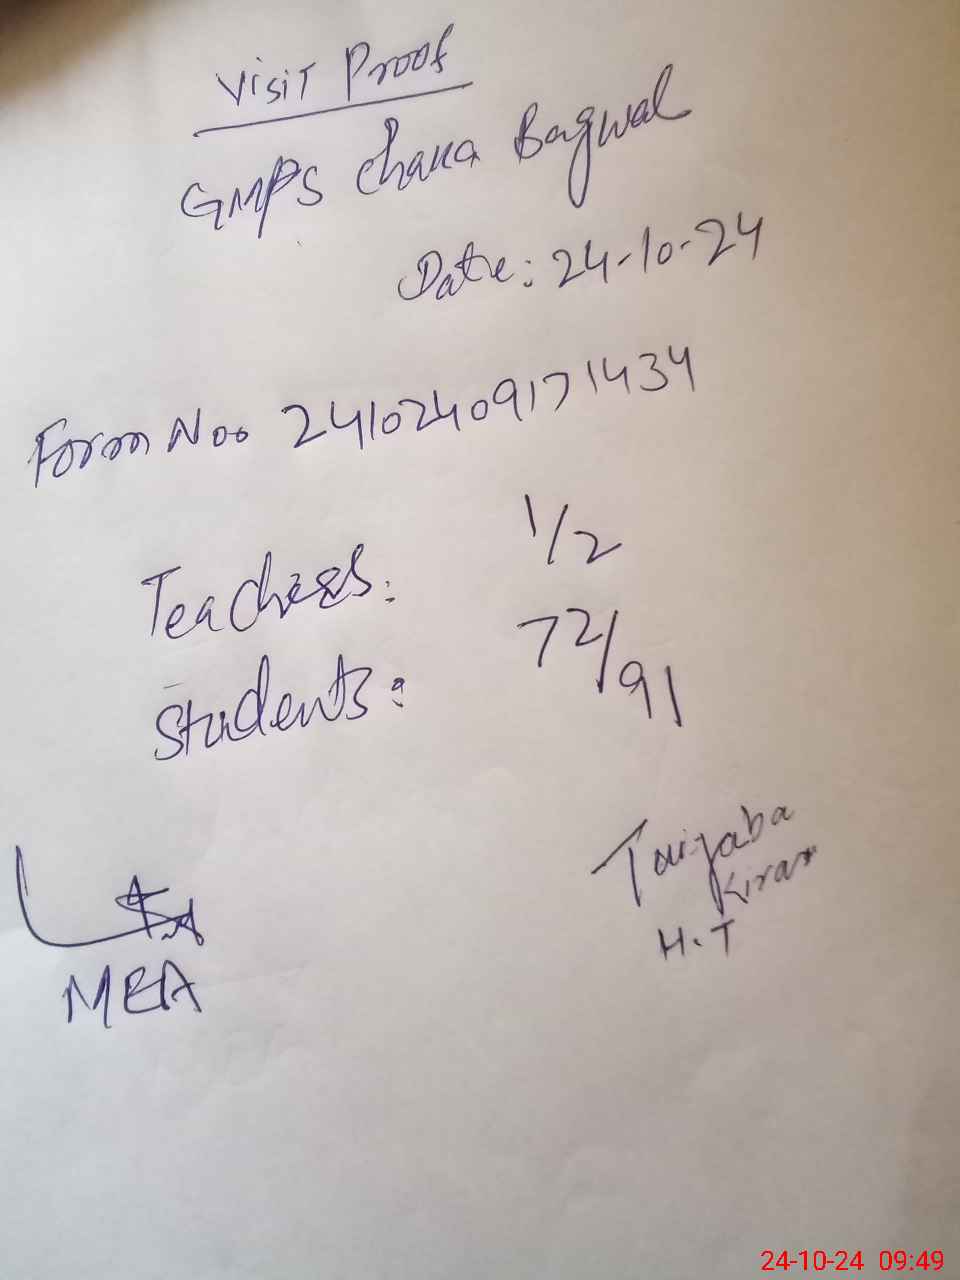 Visit Proof
GMPS Chaka Bagwal
Date: 24-10-24
Form No. 24102409171434
Teachers: 1/2
Students: 72/91
Taiyaba
Kiran
H.T
MEA
24-10-24 09:49